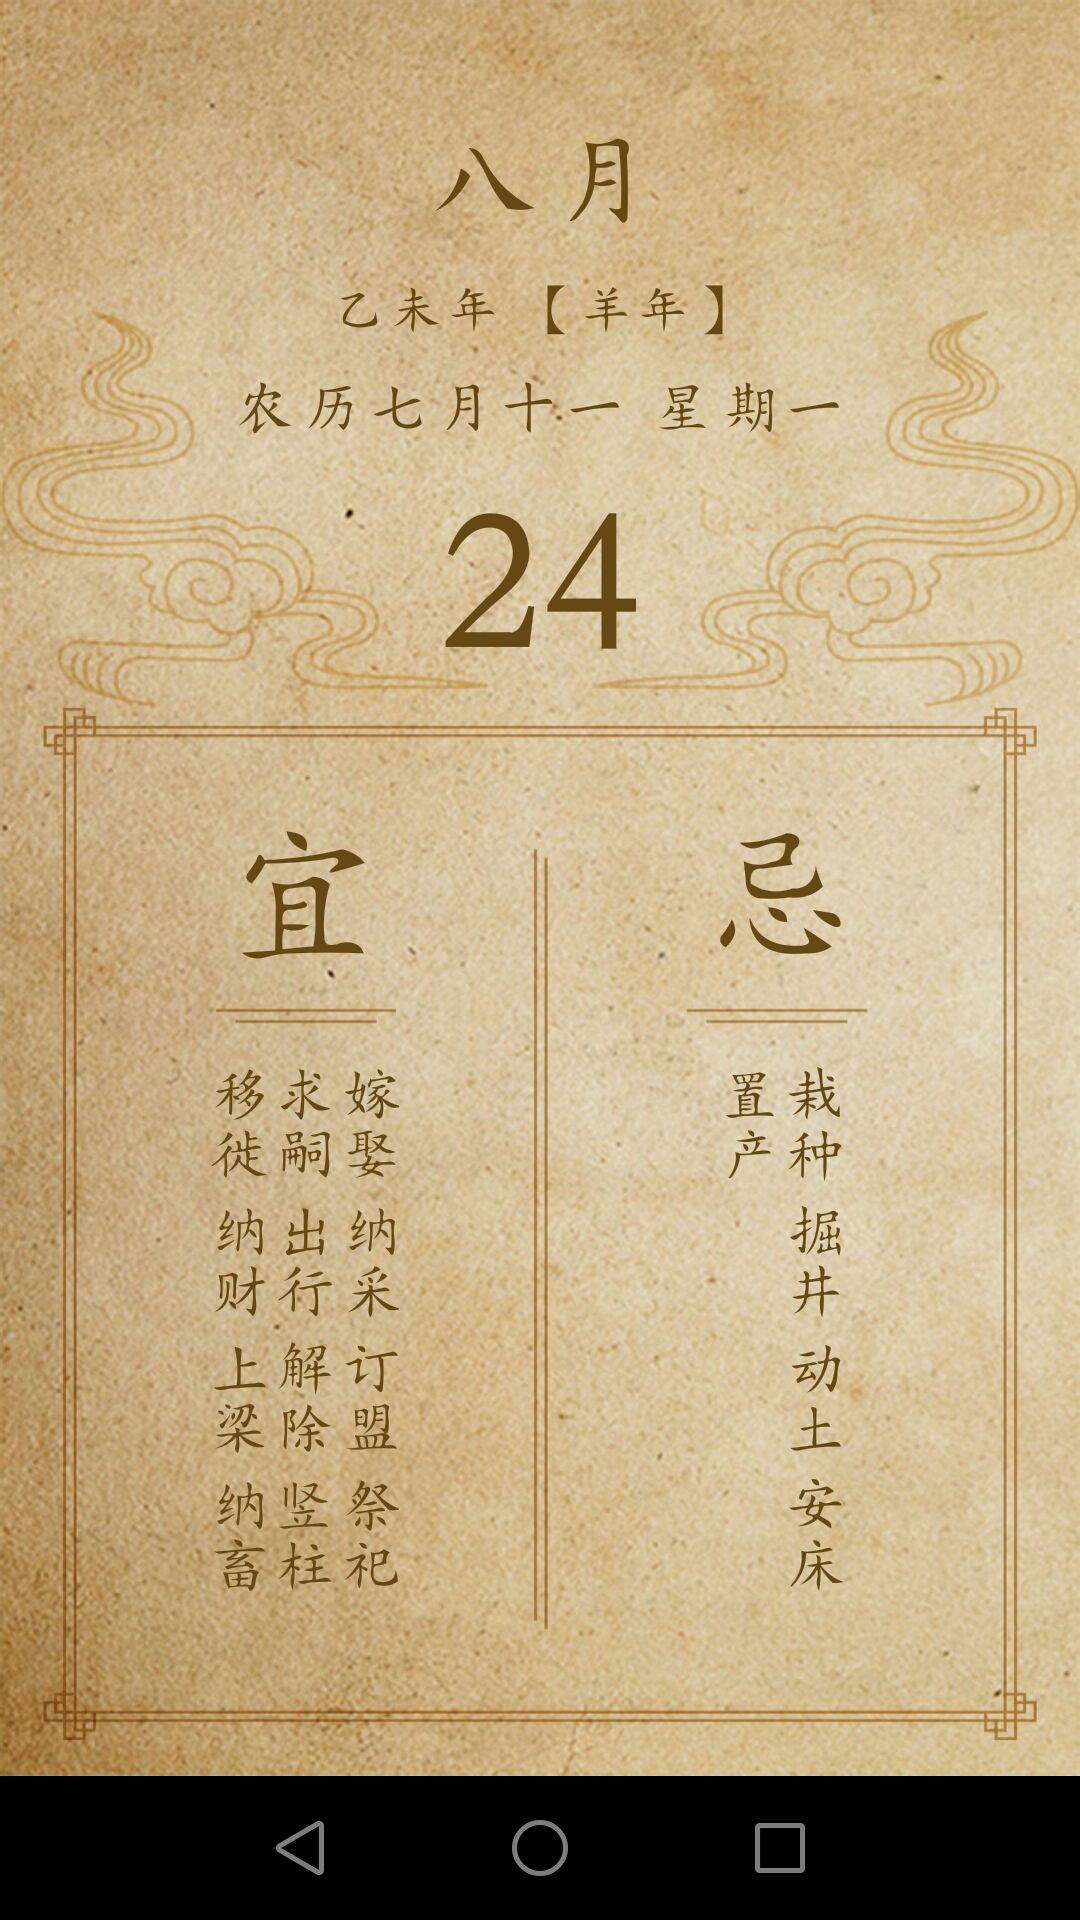 八月
乙未年【羊年】
农历七月十一 星期一
24
宜
嫁娶 纳采 订盟 祭祀
求嗣 出行 解除 竖柱
移徙 纳财 上梁 纳畜
忌
栽种 掘井 动土 安床
置产